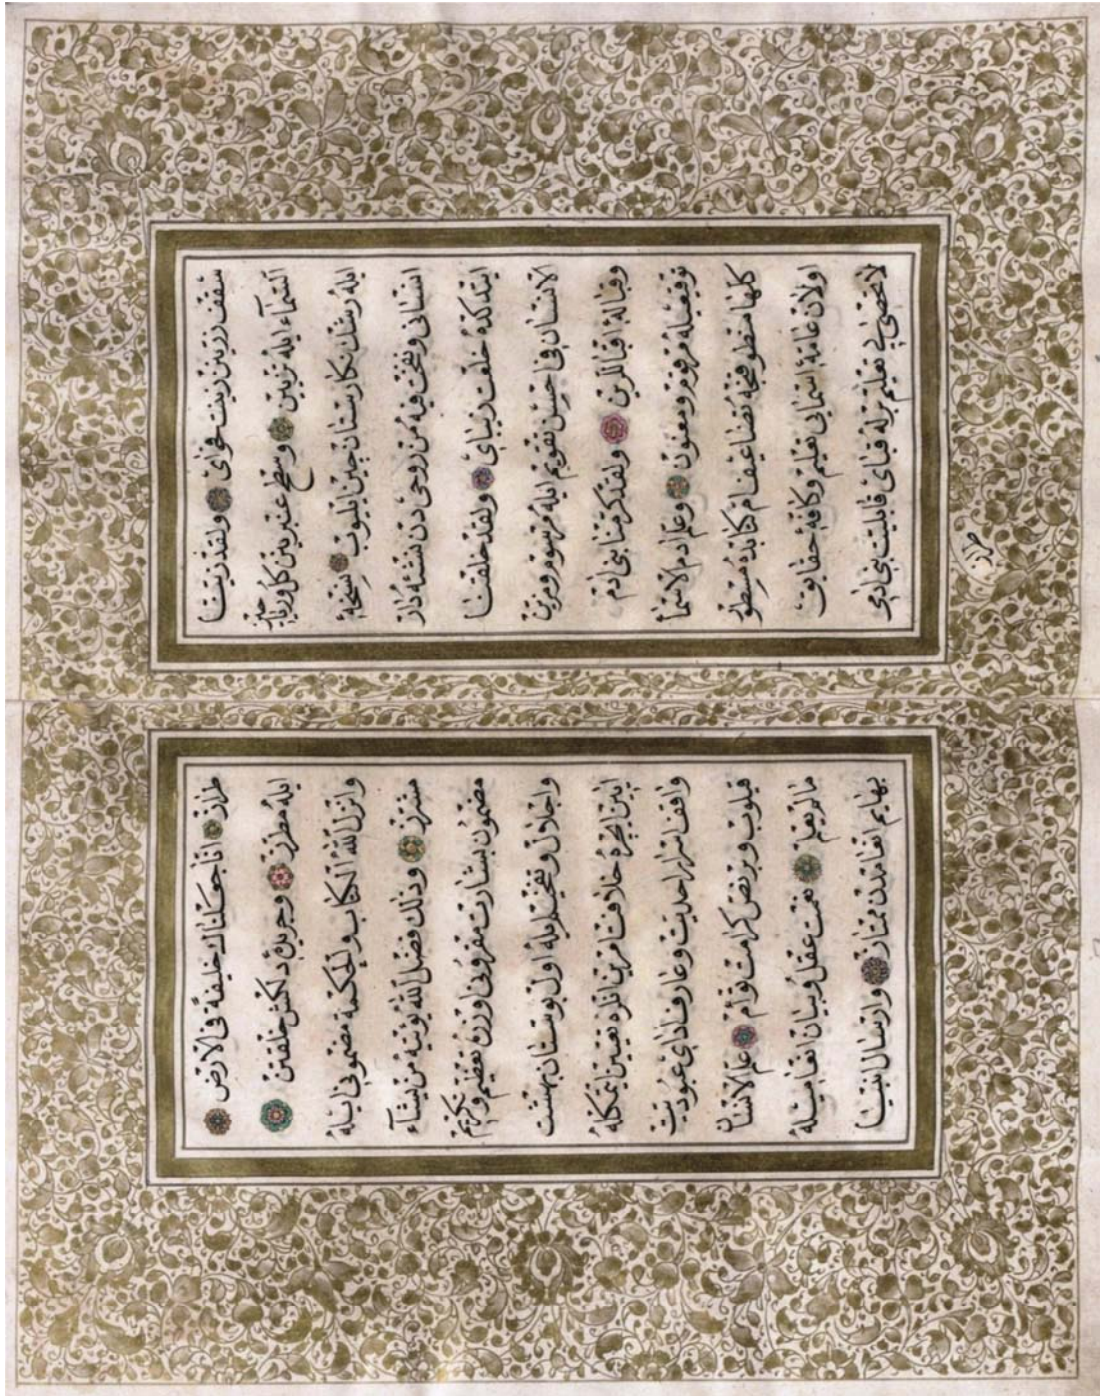 سقف زرین زینت خوای ولقد زینا
السماء ایله تزیین و سطح عنبرین کل وریاحین
ایله رشك نكارستان چین ایلیوب نسخهٔ
انسانی ونفخت فیه من روحی دن نشئه دار
ایتدکده خلعت زیبای ولقد خلقنا
الانسان فی احسن تقویم ایله مرسوم ومزین
وقبالهٔ اقبالرین ولقد کرمنا بنی ادم
توقیعیله مرموز ومعنون وعلم ادم الاسماء
کلها منطوقنجه تضاعیف امکانده مسطور
اولان عامهٔ اسمایی تعلیم وکافهٔ حقایق
لاتحصی یی تفهیم برله قبای قابلیت بنی ادمی
طراز
طراز انا جعلناك خلیفة فی الارض
ایله مطرز وجریدهٔ دلکش خلقتن
وانزل الله الکتاب والحکمة مضمونی ایله
مشرز وذلك فضل الله یؤتیه من یشاء
مضمون بشارت مقرونی اوزره تعظیم وتکریم
واجلال وتفخیم ایله اول بوستان بهشت
ایین ایچره خلافتله مرتبه لرن تعیین ایتمکله
واقف اسرار احدیت وعارف ادای عبودیت
قیلوب وبر نص کرامت توأم علم الانسان
مالم یعلم نعمت عقل وبیان انعامیله
بهایم وانعامدن ممتاز وارسال انبیا